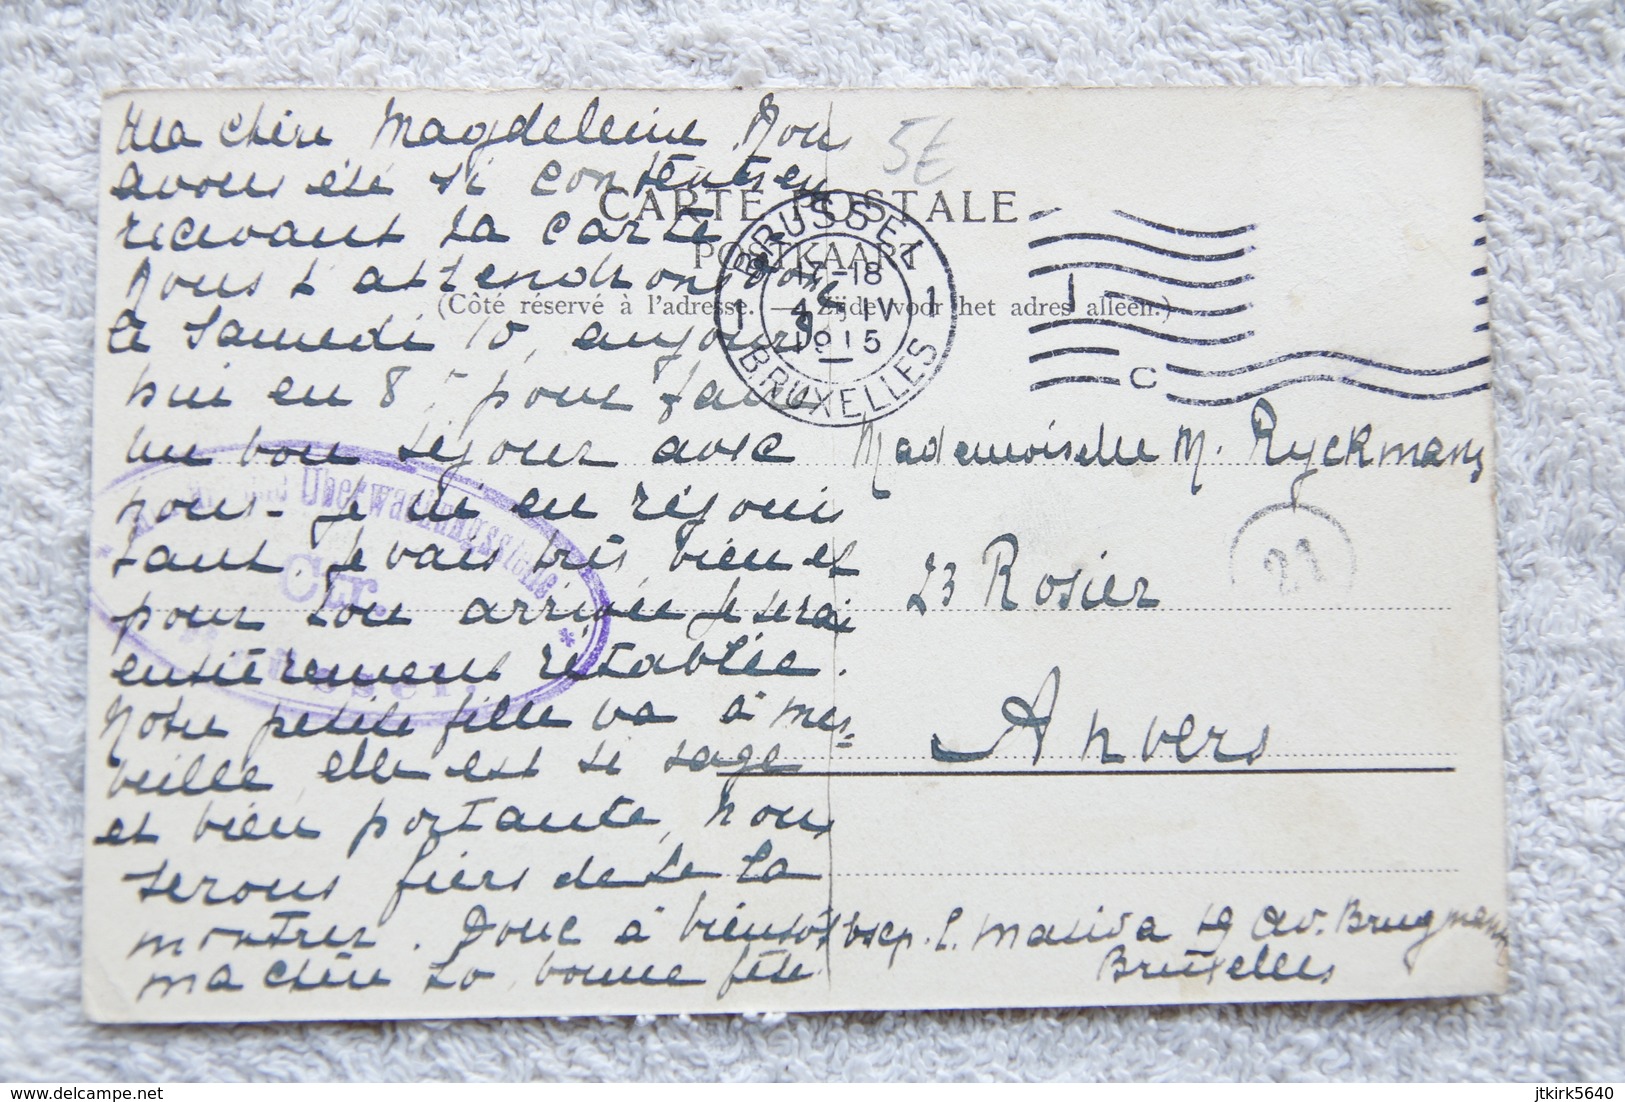 Ma chère Magdeleine, Nous
avons été si contents en
recevant ta carte.
Nous t'attendrons donc
le Samedi 10, aujourd'
hui en 8, pour faire
un bon séjour avec
nous. Je m'en réjouis
tant. Je vais très bien et
pour ton arrivée je serai
entièrement rétablie.
Notre petite fille va à mer=
veille, elle est si sage
et bien portante, nous
serons fiers de te la
montrer. Donc à bientôt
ma chère bonne fête
5€
CARTE POSTALE
POSTKAART
(Côté réservé à l'adresse. — Zijde voor het adres alleen.)
BRUSSEL
1 17-18 1
4 IV
1915
BRUXELLES
C
Überwachungsstelle
Mademoiselle M. Ryckmans
23 Rosier
Anvers
21
59 av. Brugmann
Bruxelles
delcampe.net
jtkirk5640